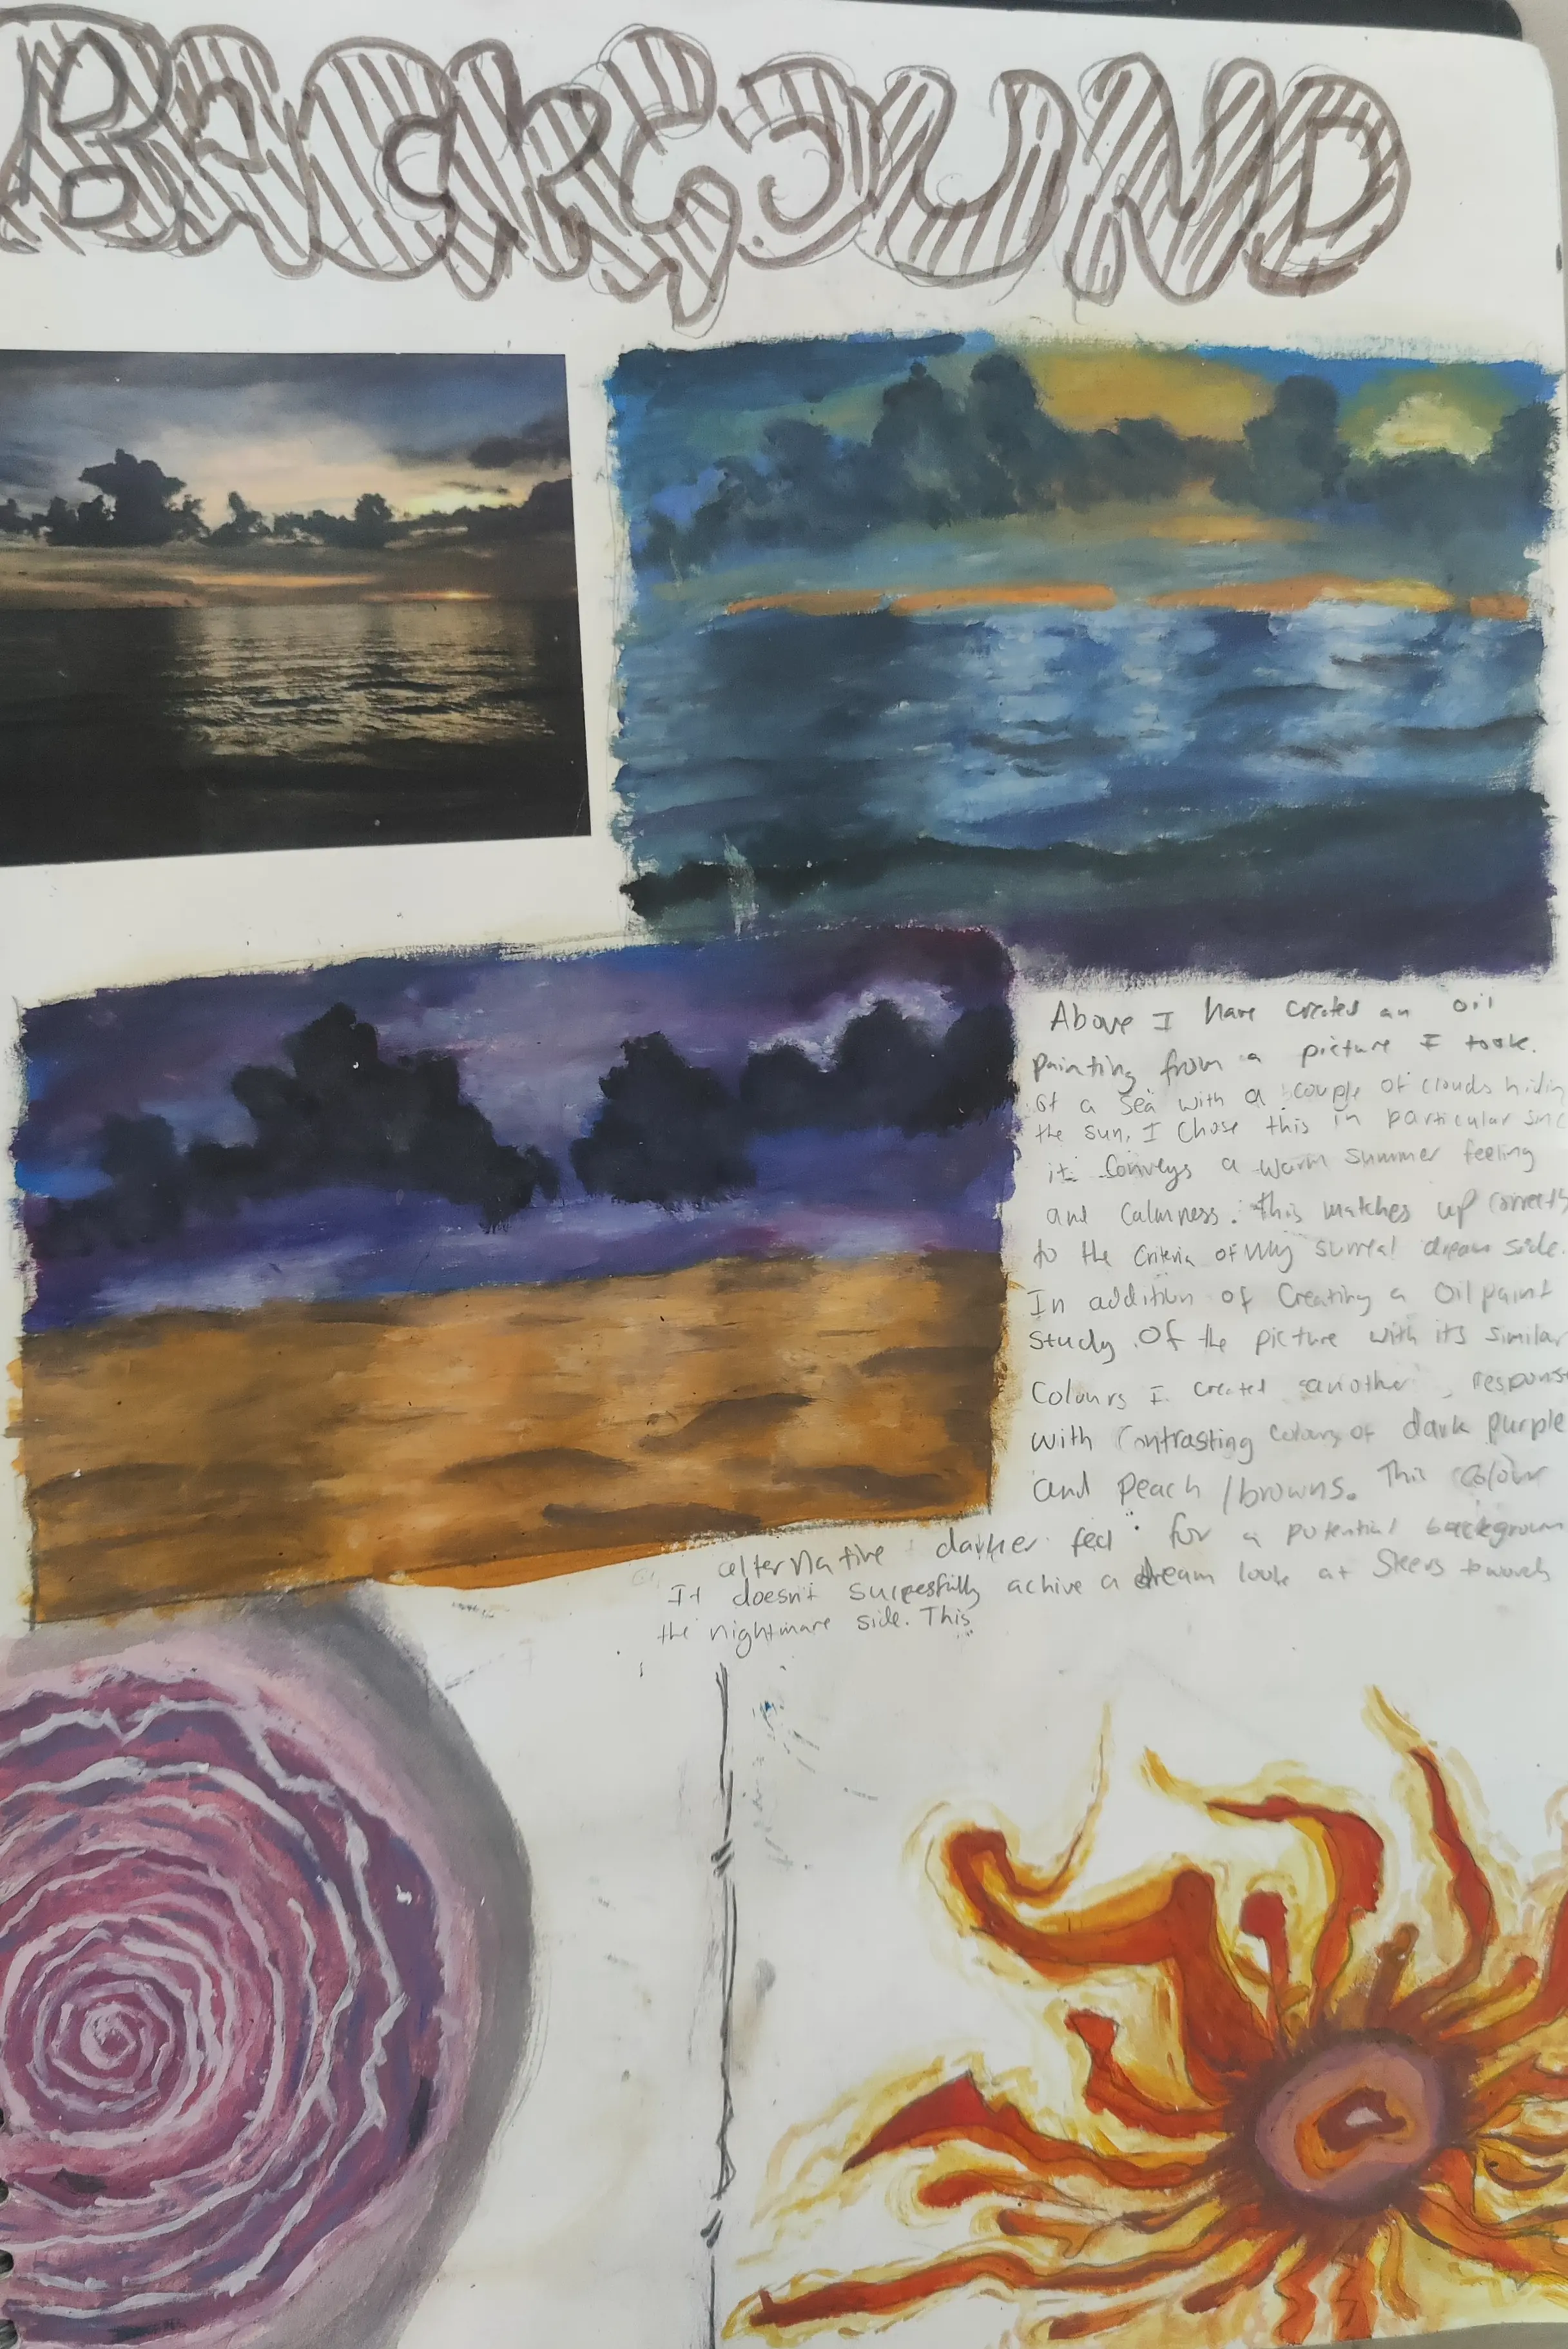 BACKGOUND
Above I have created an oil
painting from a picture I took.
of a sea with a couple of clouds hidin
the sun. I chose this in particular sinc
it conveys a warm summer feeling
and Calmness. this matches up correctly
to the criteria of My surreal dream side.
In addition of Creating a Oil paint
study of the picture with its similar
Colours I created another response
with contrasting colours of dark purple
and peach / browns. This colour
alternative darker feel for a potential backgroun
It doesn't sucessfully achive a dream look at towards
the nightmare side. This